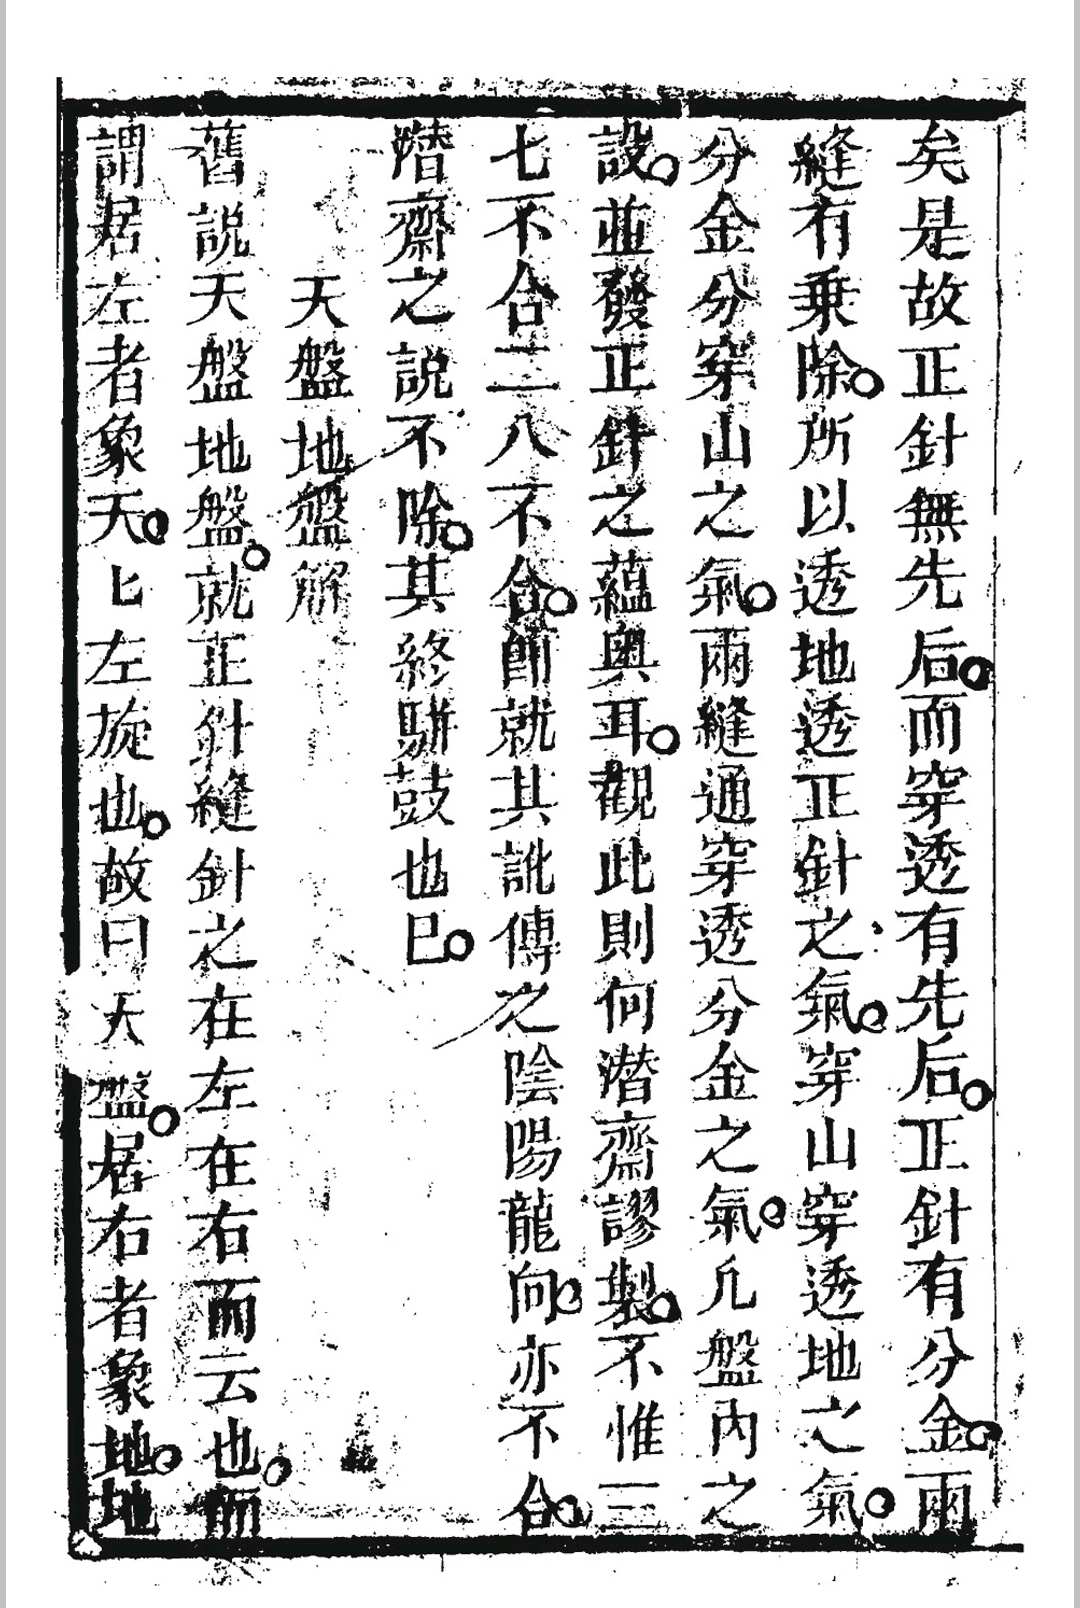 矣是故正針無先后而穿透有先后正針有分金兩
縫有乗除所以透地透正針之氣穿山穿透地之氣
分金分穿山之氣兩縫通穿透分金之氣凢盤內之
設並發正針之蘊奧耳觀此則何潛齋謬製不惟三
七不合二八不合卽就其訛傳之陰陽龍向亦不合
潛齋之說不除其終駢鼓也巳
天盤地盤解
舊說天盤地盤就正針縫針之在左在右而云也師
謂居左者象天匕左旋也故曰天盤居右者象地地